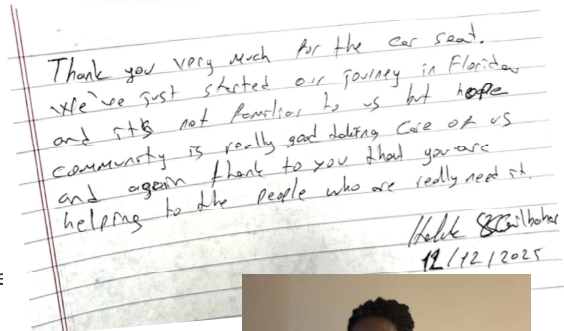 Thank you very much for the car seat.
We've just started our journey in Florida
and it's not familiar to us but hope
community is really good taking care of us
and again thank to you that you are
helping to the people who are really need it.
12/12/2025